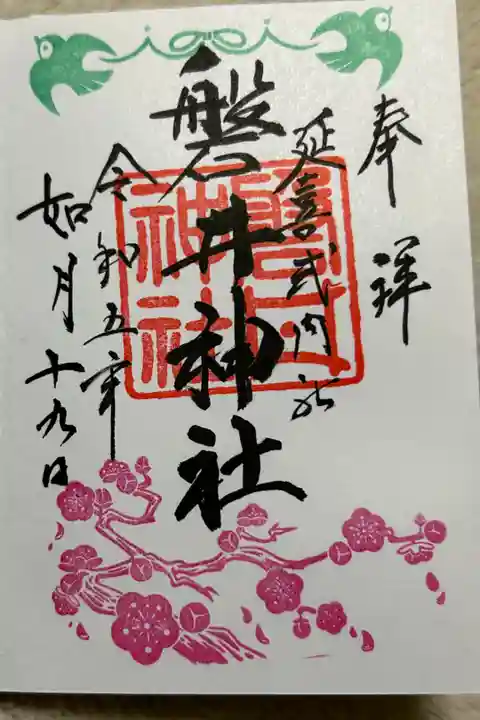 奉拝
延喜式内社
磐井神社
令和五年
如月十九日